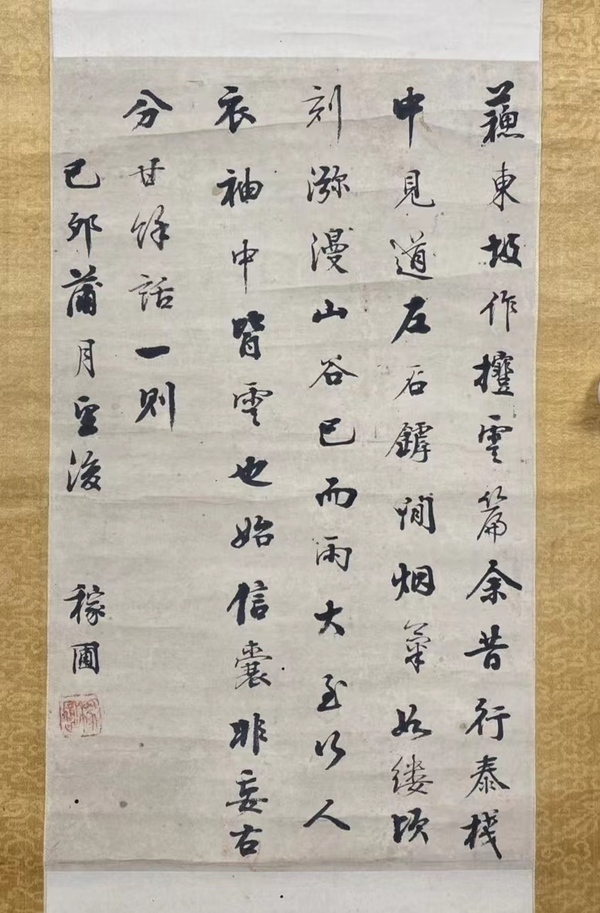 蘓東坡作攓雲篇余昔行秦棧
中見道左石罅間烟氣如缕頃
刻瀰漫山谷已而雨大至行人
衣袖中皆雲也始信囊非妄右
分甘馀話一则
己卯蒲月望後
稼圃